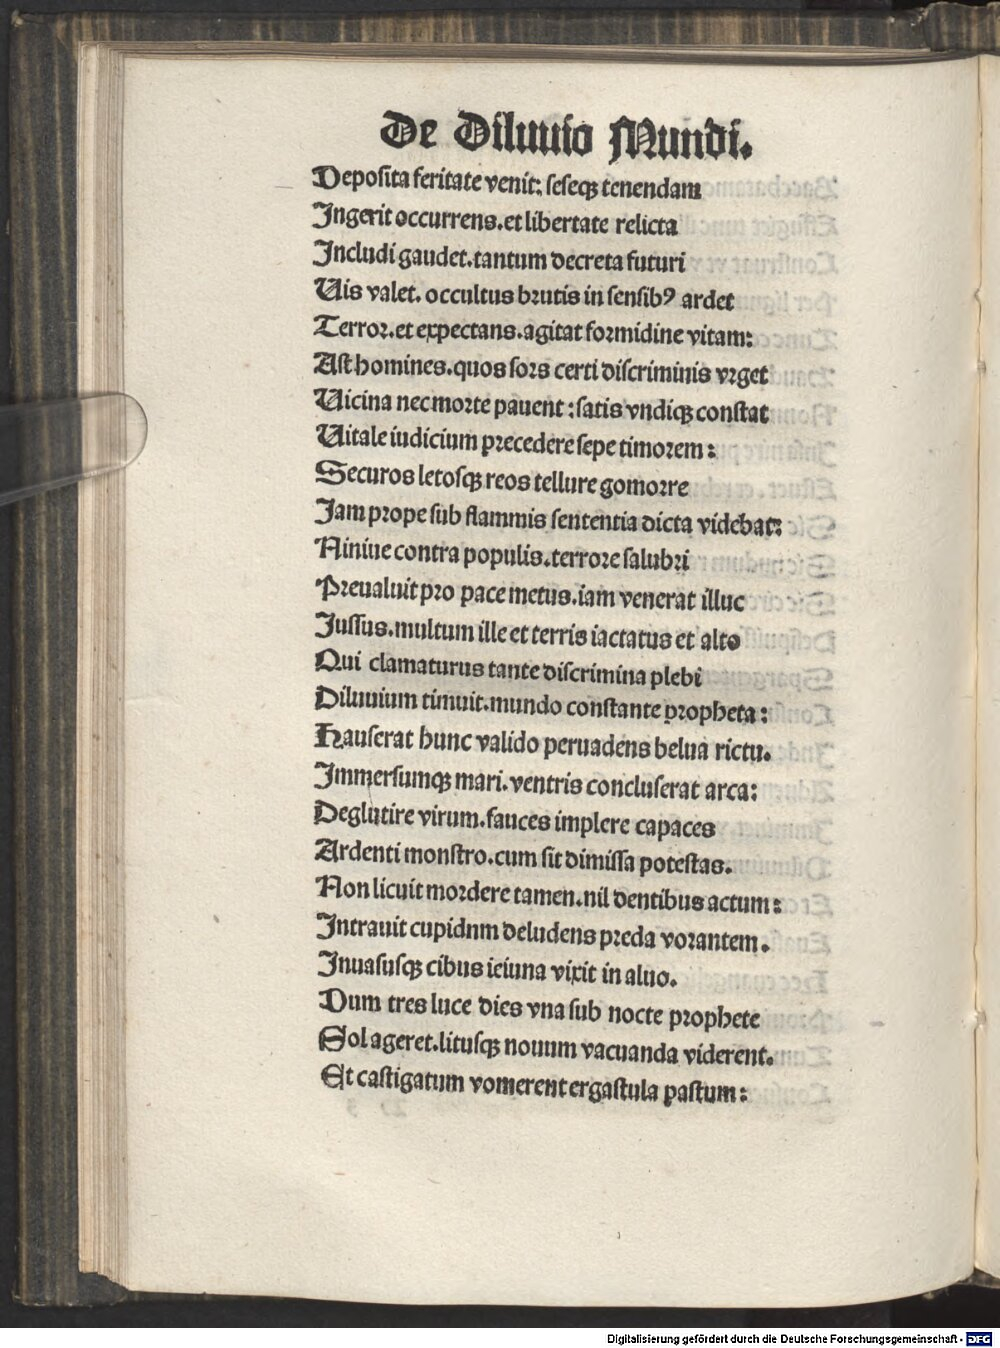 De Diluuio Mundi.
Deposita feritate venit: seseqꝫ tenendam
Ingerit occurrens.et libertate relicta
Includi gaudet.tantum decreta futuri
Uis valet. occultus brutis in sensibꝰ ardet
Terror.et expectans.agitat formidine vitam:
Ast homines.quos sors certi discriminis vrget
Uicina nec morte pauent : satis vndiqꝫ constat
Uitale iudicium precedere sepe timorem :
Securos letosqꝫ reos tellure gomorre
Jam prope sub flammis sententia dicta videbat:
Niniue contra populis.terrore salubri
Preualuit pro pace metus.iam venerat illuc
Jussus.multum ille et terris iactatus et alto
Qui clamaturus tante discrimina plebi
Diluuium timuit.mundo constante propheta :
Hauserat hunc valido peruadens belua rictu.
Immersumqꝫ mari.ventris concluserat arca:
Deglutire virum.fauces implere capaces
Ardenti monstro.cum sit dimissa potestas.
Non licuit mordere tamen.nil dentibus actum :
Intrauit cupidnm deludens preda vorantem .
Inuasusqꝫ cibus ieiuna vixit in aluo.
Dum tres luce dies vna sub nocte prophete
Sol ageret.litusqꝫ nouum vacuanda viderent.
Et castigatum vomerent ergastula pastum :
Digitalisierung gefördert durch die Deutsche Forschungsgemeinschaft - DFG